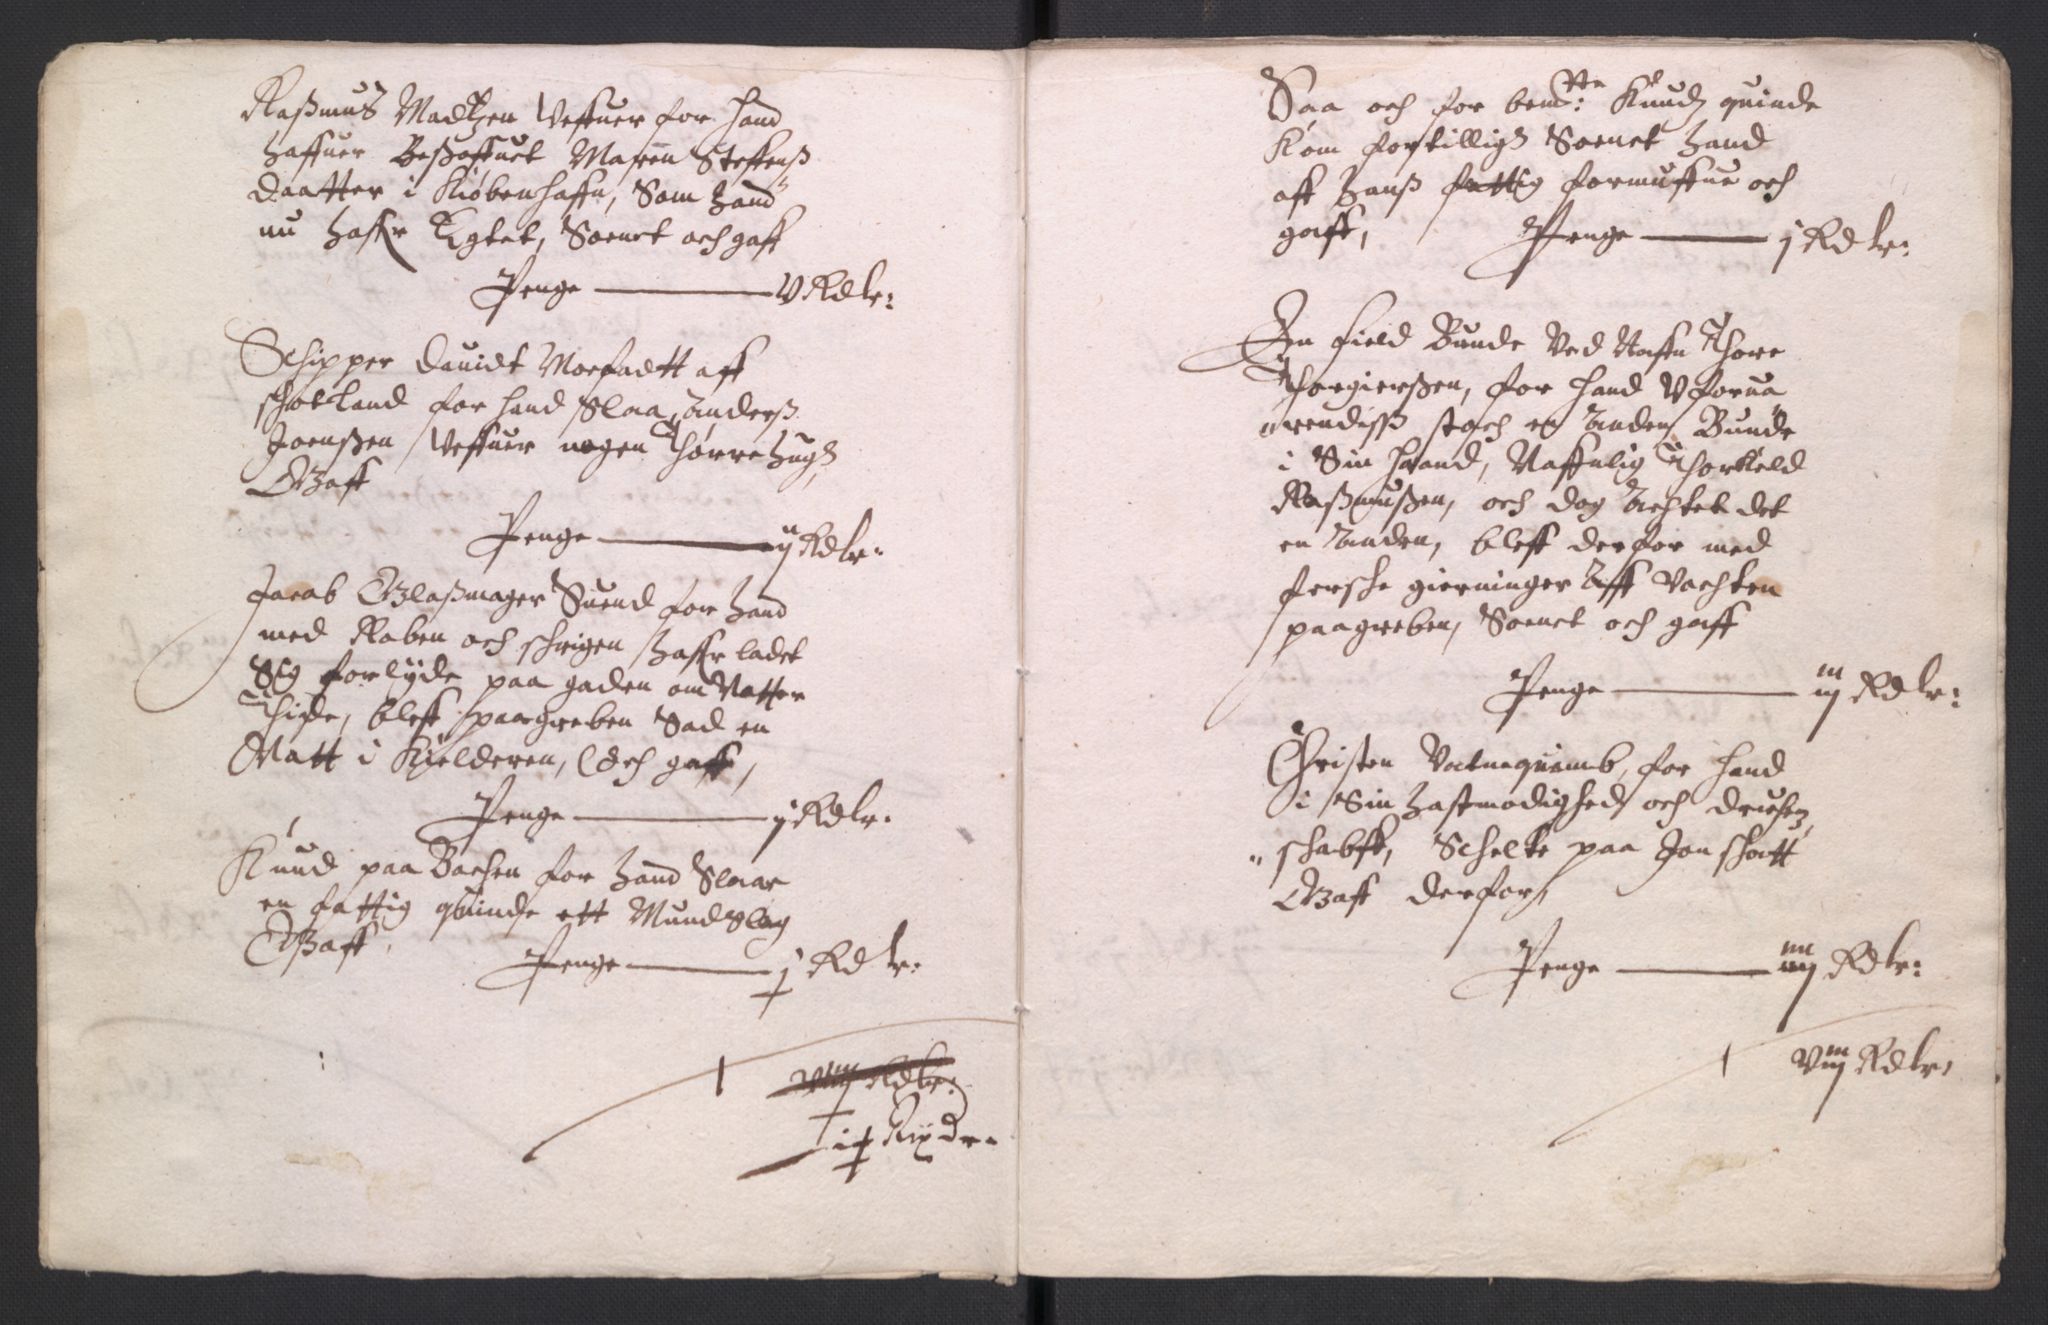 Raßmus Madtzen Weffuer for hand
haffuer Beßoffuet Maren Steffenß
daatter i Kiøbenhaffn, Som hand
nu haffr Egtet, Soenet och gaff
Penge — V Rdlr:
Schipper Dauidt Morfadtt aff
schotland for hand Slaa Anderß
Joenßen Weffuer nogen Thørre hugs,
Gaff
Penge — ij Rdlr:
Jacob Glaßmager Suend for hand
med Raben och schrigen haffr ladet
Sig forlyde paa gaden om Natter
Thide, bleff paagreben Sad en
Natt i Kielderen, Och gaff,
Penge — j Rdlr:
Knud paa Bachen for hand Slaar
en fattig quinde ett Mundslag
Gaff
Penge — j Rdlr:
Viiij Rdlr:
ix Rixdr.
Saa och for bemte: Knudz quinde
Kom fortilligs Soenet hand
aff hanß fattig formuffue och
gaff, Penge — j Rdlr:
En field Bunde Ved Naffn Thore
Thorgierßen, for hand Vforua
rendiß stach en Anden Bunde
i Sin Haand, Naffnlig Thorkield
Raßmußen, och dog Achtet det
en Anden, bleff derfor med
fersche gierninger Aff Vachten
paagreben, Soenet och gaff
Penge — iij Rdlr:
Christen for hand
i Sin hastmodighed och druchen
schabff, Schelte paa Jon schott
Gaff derfor,
Penge — iiij Rdlr:
Viij Rdlr: